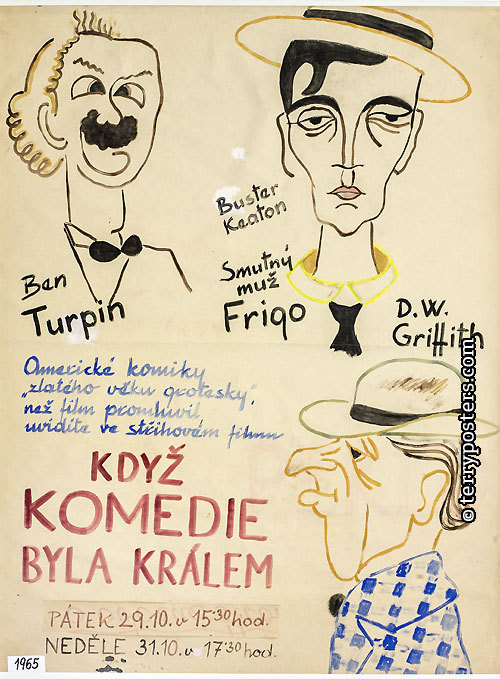 Ben
Turpin
Buster
Keaton
Smutný
muž
Frigo
D.W.
Griffith
Americké komiky
„zlatého věku grotesky“,
než film promluvil
uvidíte ve střihovém filmu
KDYŽ
KOMEDIE
BYLA KRÁLEM
PÁTEK 29.10. v 15³⁰ hod.
NEDĚLE 31.10. v 17³⁰ hod.
1965
© terryposters.com